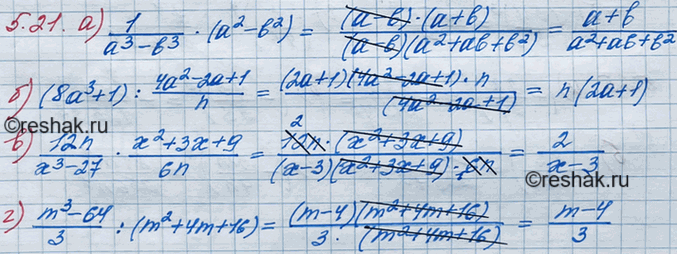 5.21. а) 1/(a³-b³) · (a²-b²) = ((a-b)·(a+b))/((a-b)(a²+ab+b²)) = (a+b)/(a²+ab+b²)
б) (8a³+1) : (4a²-2a+1)/n = ((2a+1)(4a²-2a+1)·n)/(4a²-2a+1) = n(2a+1)
©reshak.ru
в) 12n/(x³-27) · (x²+3x+9)/6n = (2 12n·(x²+3x+9))/((x-3)(x²+3x+9)·6n) = 2/(x-3)
©reshak.ru
г) (m³-64)/3 : (m²+4m+16) = ((m-4)(m²+4m+16))/(3·(m²+4m+16)) = (m-4)/3